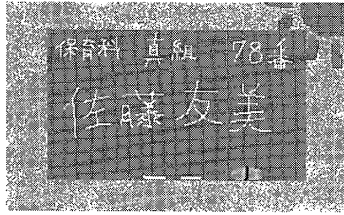 保育科 真組 78番
佐藤友美